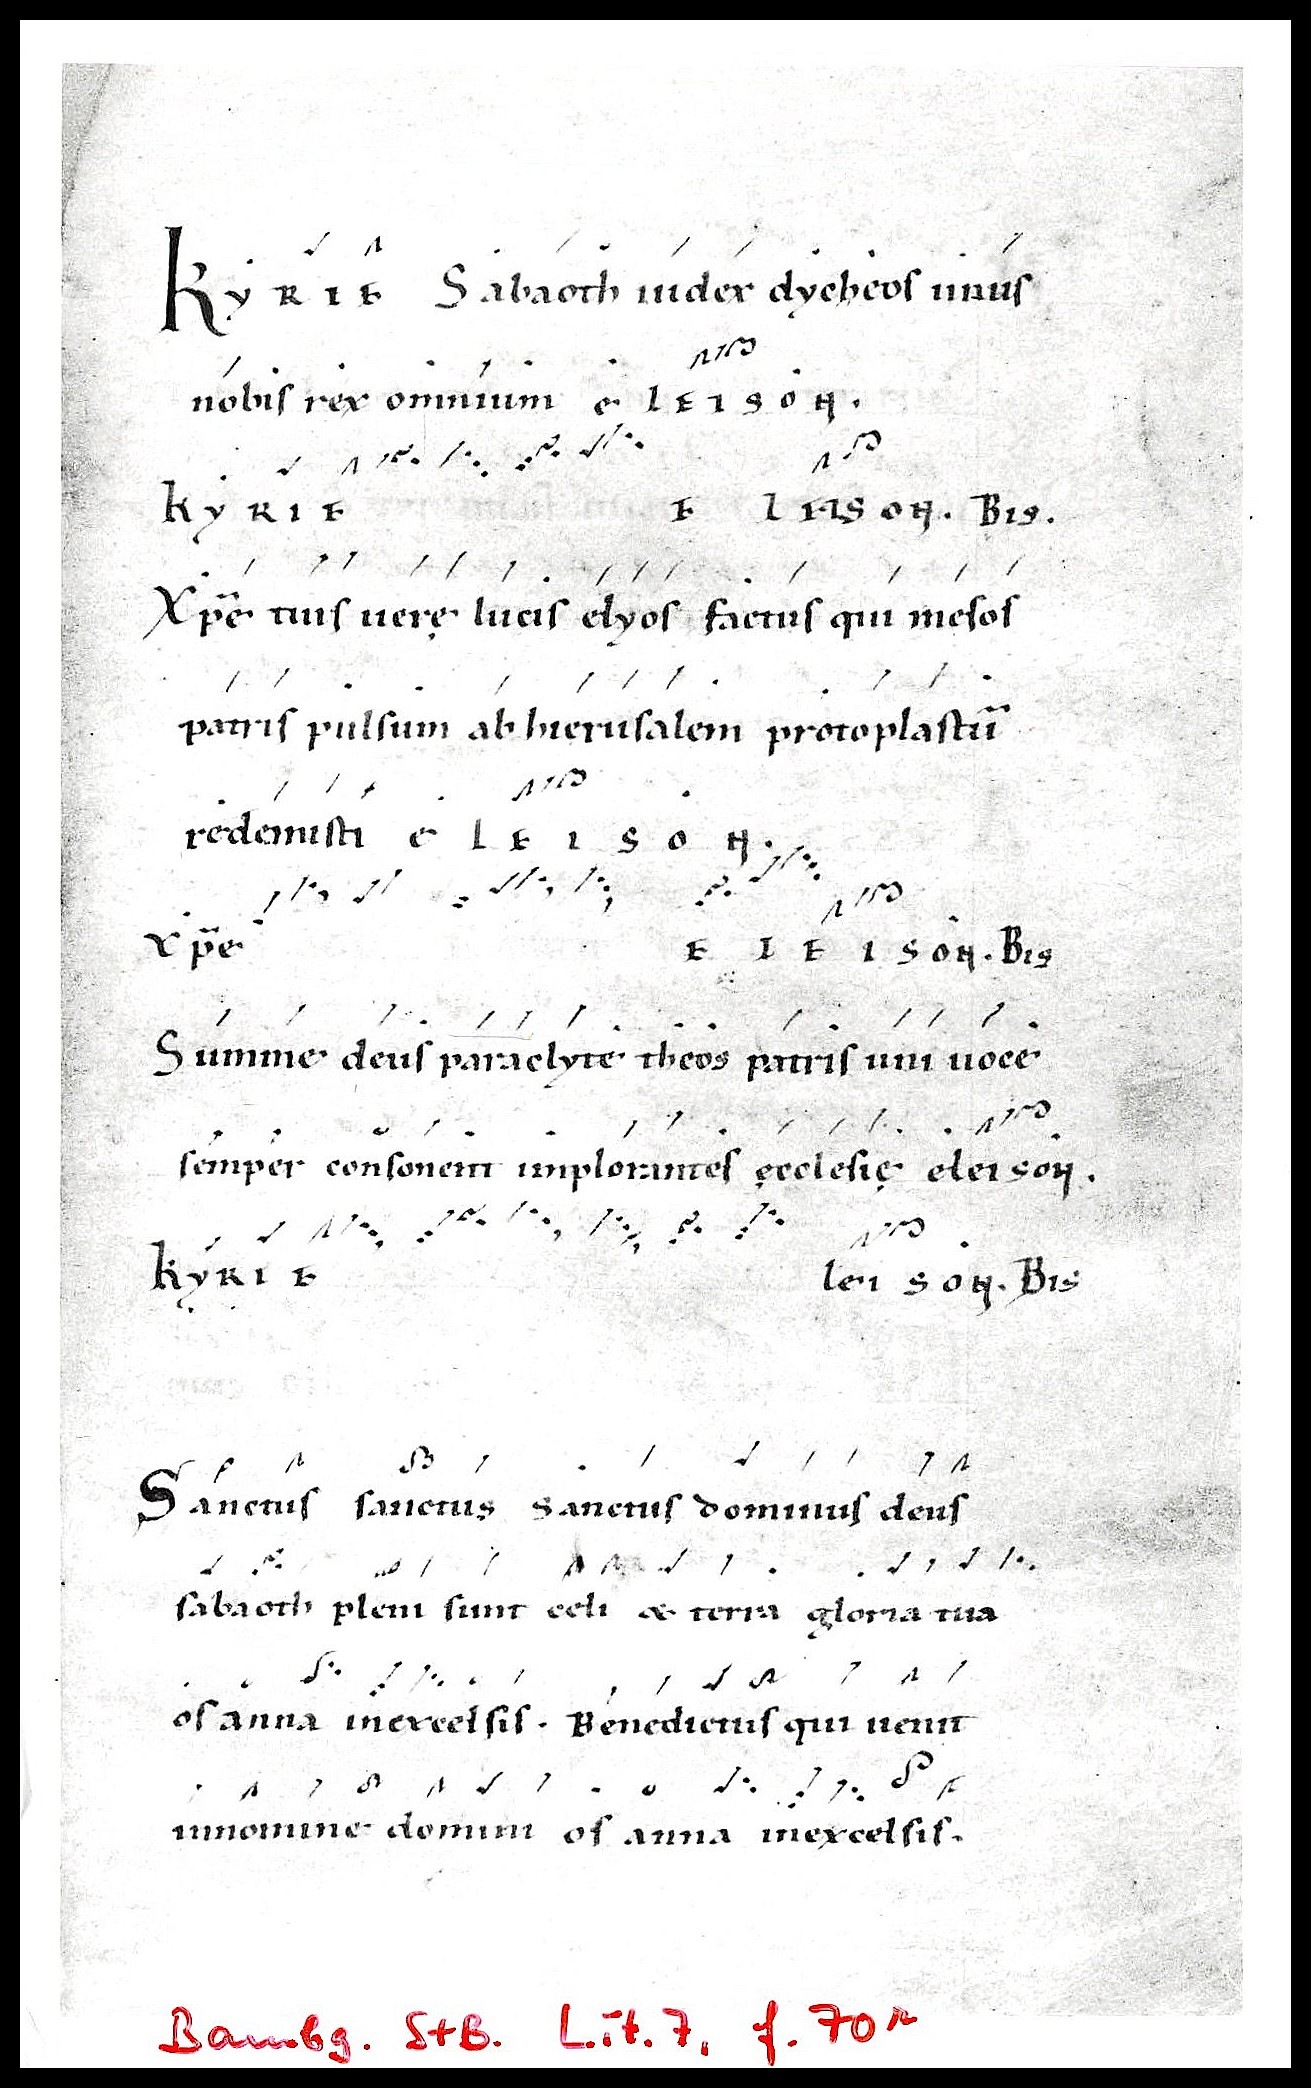 KYRIE Sabaoth iudex dycheos unus
nobis rex omnium e LEISON.
KYRIE E LEISON. BIS.
Xp̄e tuis uerę lucis elyos factus qui mesos
patris pulsum ab hierusalem protoplastū
redemisti e LEISON.
Xp̄e E LEISON. BIS
Summe deus paraclyte theos patris uni uoce
semper consonent implorantes ęcclesię eleison.
KYRIE leiSON. BIS
Sanctus sanctus sanctus dominus deus
sabaoth pleni sunt celi & terra gloria tua
osanna inexcelsis. Benedictus qui uenit
innomine domini osanna inexcelsis.
Bambg. StB. Lit. 7, f. 70r